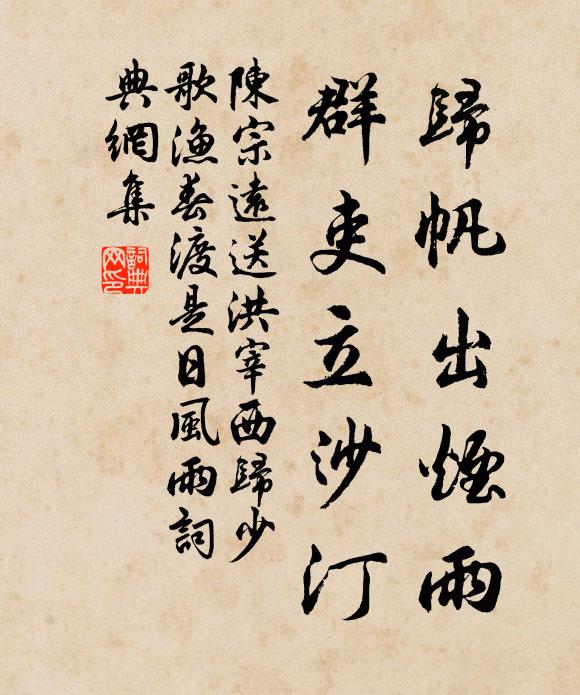 歸帆出煙雨
群吏立沙汀
陳宗遠送洪宰西歸少
歌漁春渡是日風雨詞
典網集
詞典網印